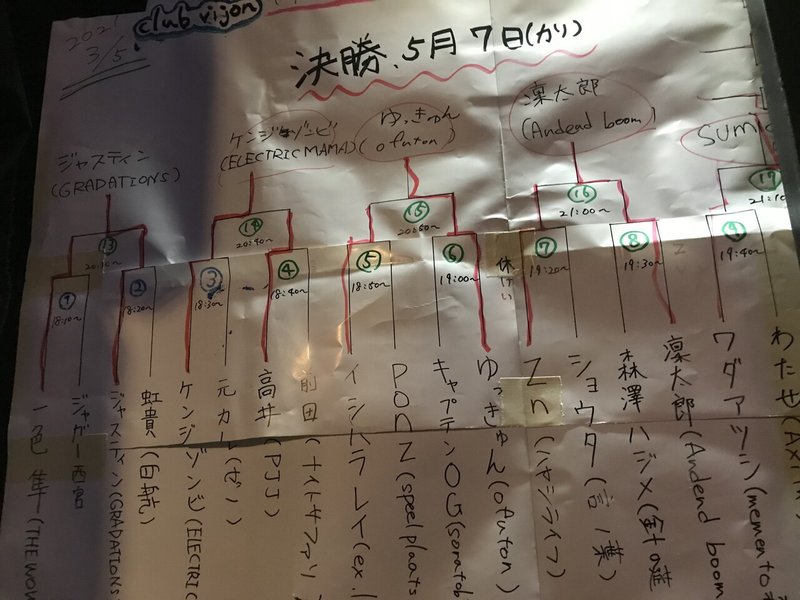 club vijon
2021
3/5
決勝、5月7日(カリ)
ジャスティン
(GRADATIONS)
ケンジゾンビ
(ELECTRIC MAMA)
ゆっきゅん
(ofuton)
凛太郎
(Andead boom)
SUMi
⑬
20:30~
⑭
20:40~
⑮
20:50~
⑯
21:00~
⑰
21:10
①
18:10~
②
18:20~
③
18:30~
④
18:40~
⑤
18:50~
⑥
19:00~
休けい
⑦
19:20~
⑧
19:30~
⑨
19:40~
一色 隼(THE WON
ジャガー西宮
ジャスティン(GRADATIONS
虹貴(白航)
ケンジゾンビ(ELECTRIC
元カール(ゼン)
高井(PJJ)
前田(ナイトサファリ
イシハラレイ(ex.
PONZ(speelplaats
キャプテンOG(soratob
ゆっきゅん(ofuton)
Zn(ハヤシライフ)
ショウタ(言ノ葉)
森澤ハジメ(針の筵
凛太郎(Andead boom
ワダアツシ(memento
わたせ(AX